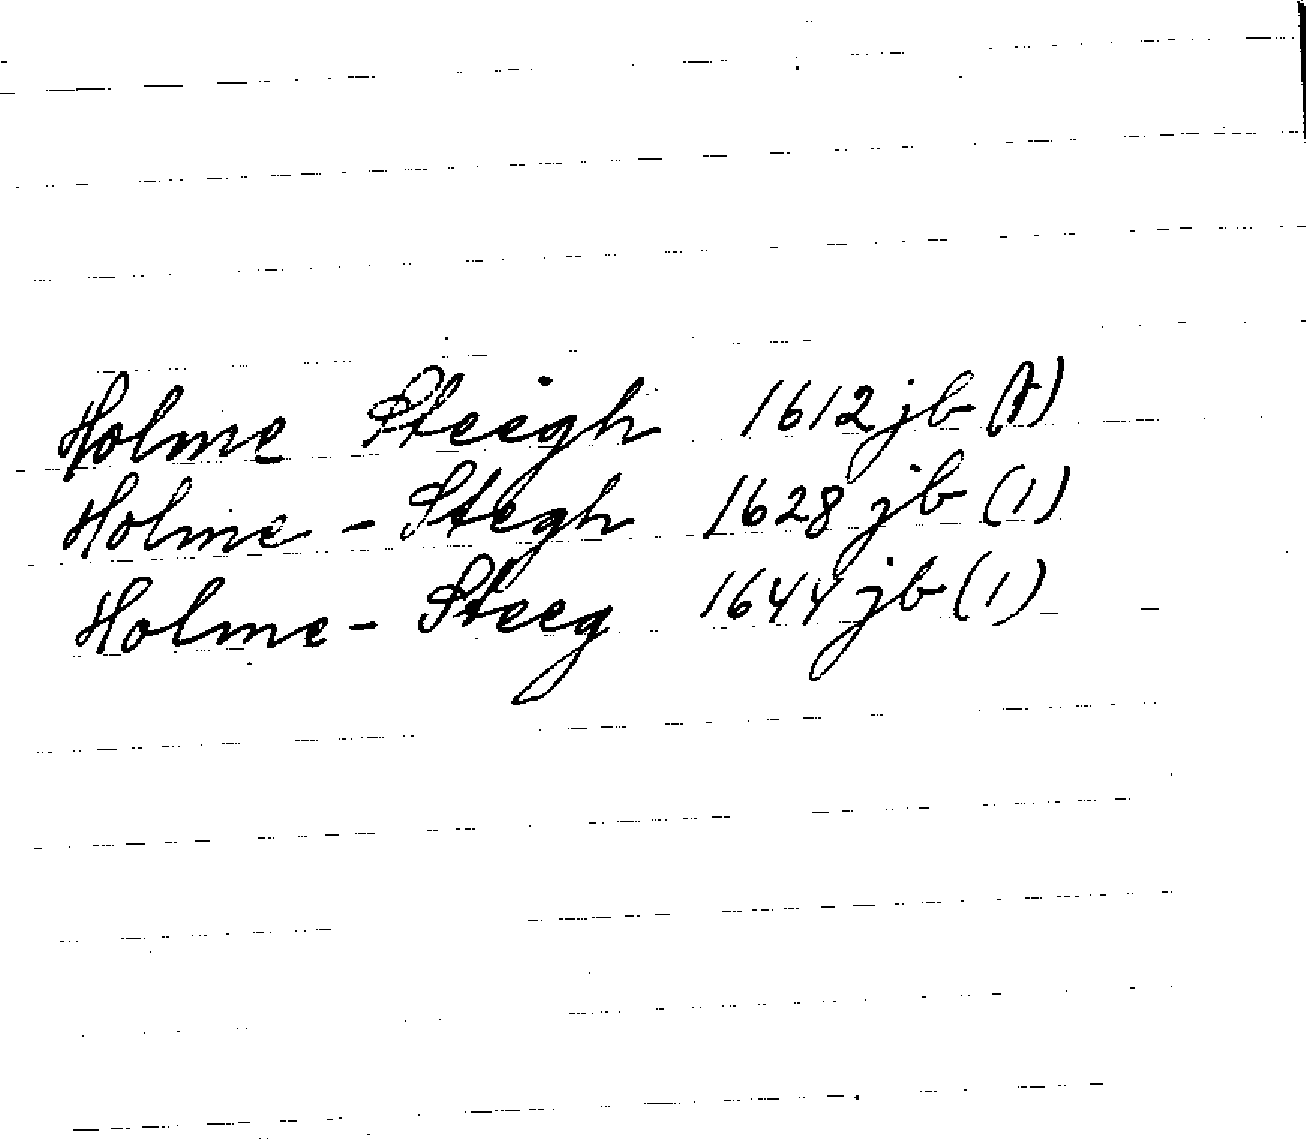 Holme Steigh 1612 jb (1)
Holme - Stegh 1628 jb (1)
Holme - Steeg 1644 jb (1)